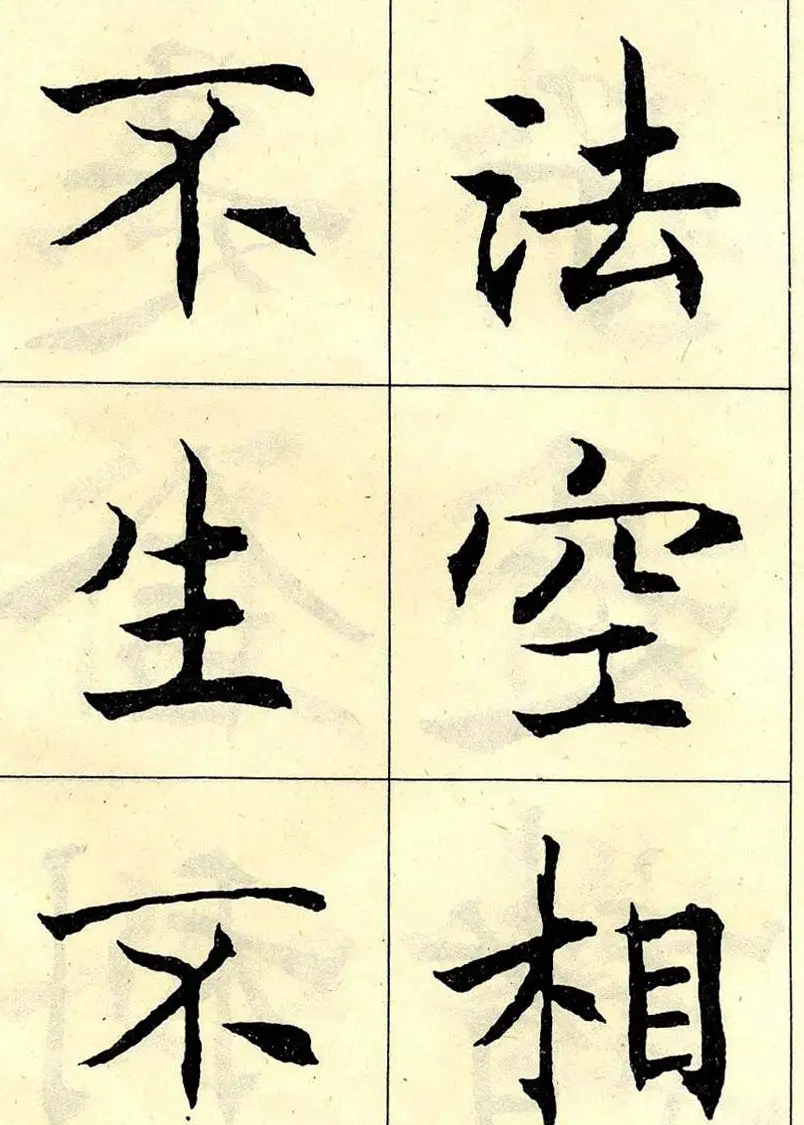 法空相
不生不